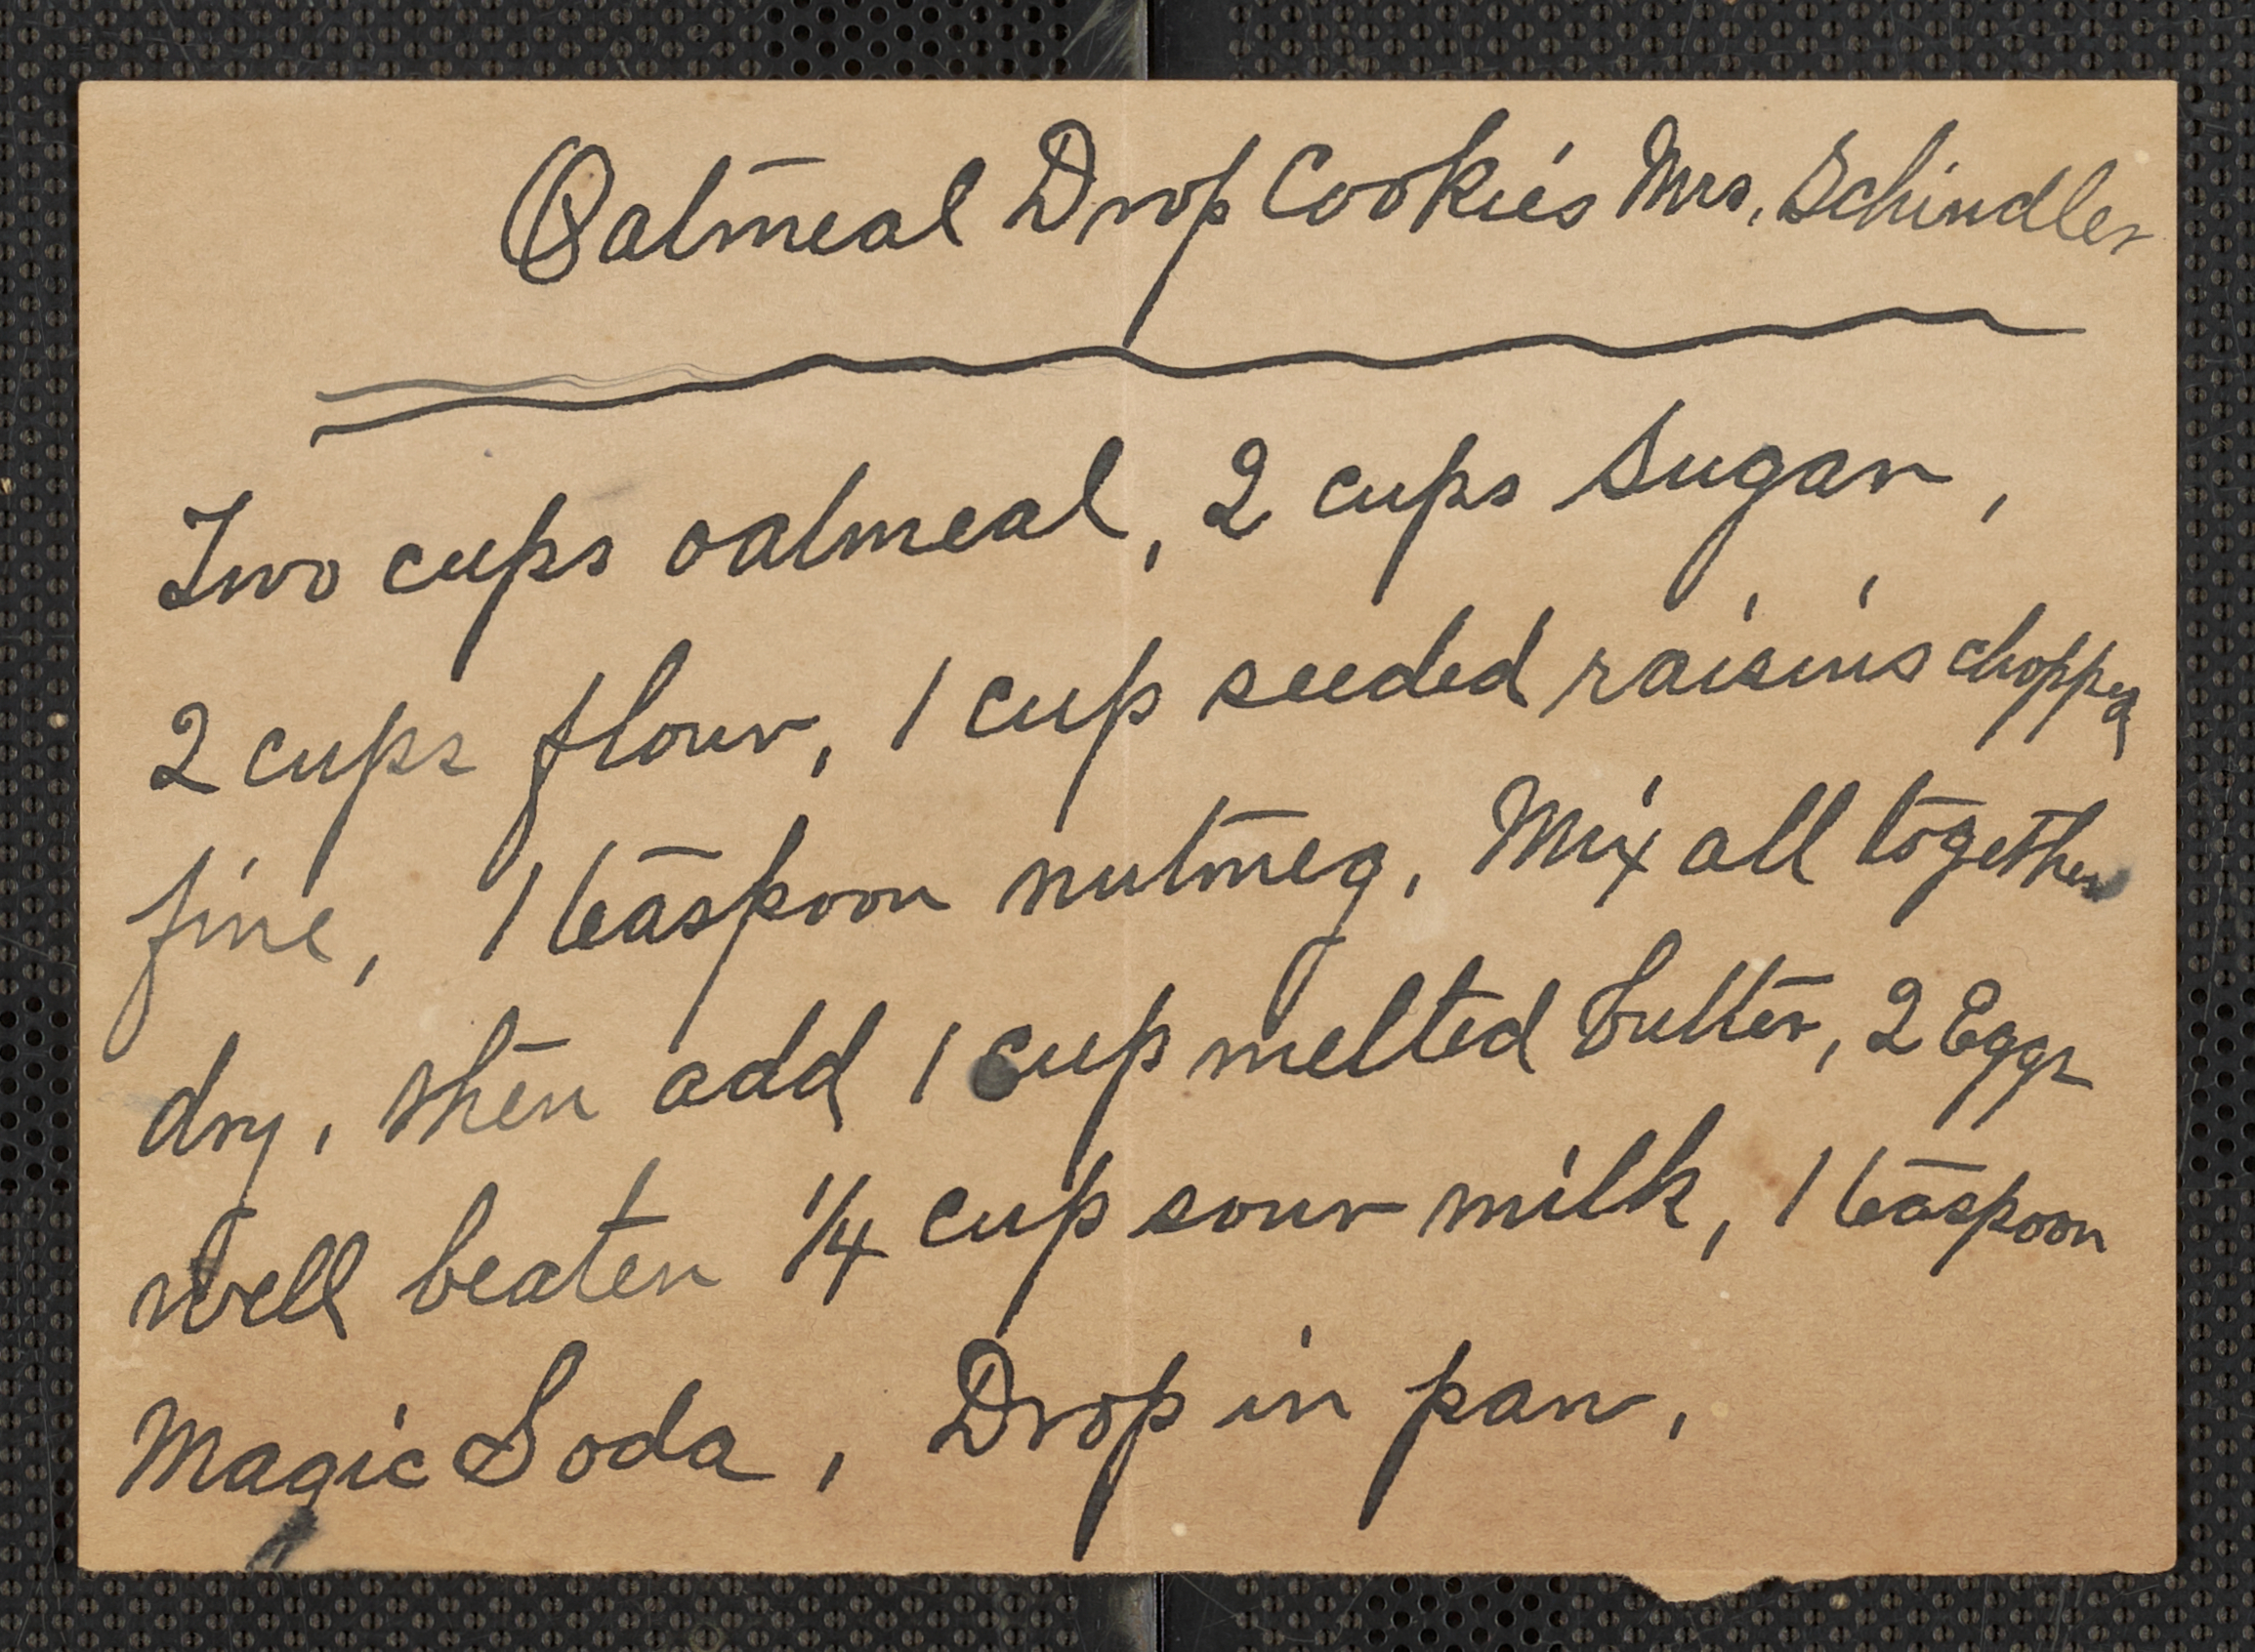 Oatmeal Drop Cookies Mrs. Schindler
Two cups oatmeal, 2 cups sugar,
2 cups flour, 1 cup seeded raisins chopped
fine, 1 teaspoon nutmeg. Mix all together
dry, then add 1 cup melted butter, 2 Eggs
well beaten 1/4 cup sour milk, 1 teaspoon
Magic Soda, Drop in pan.